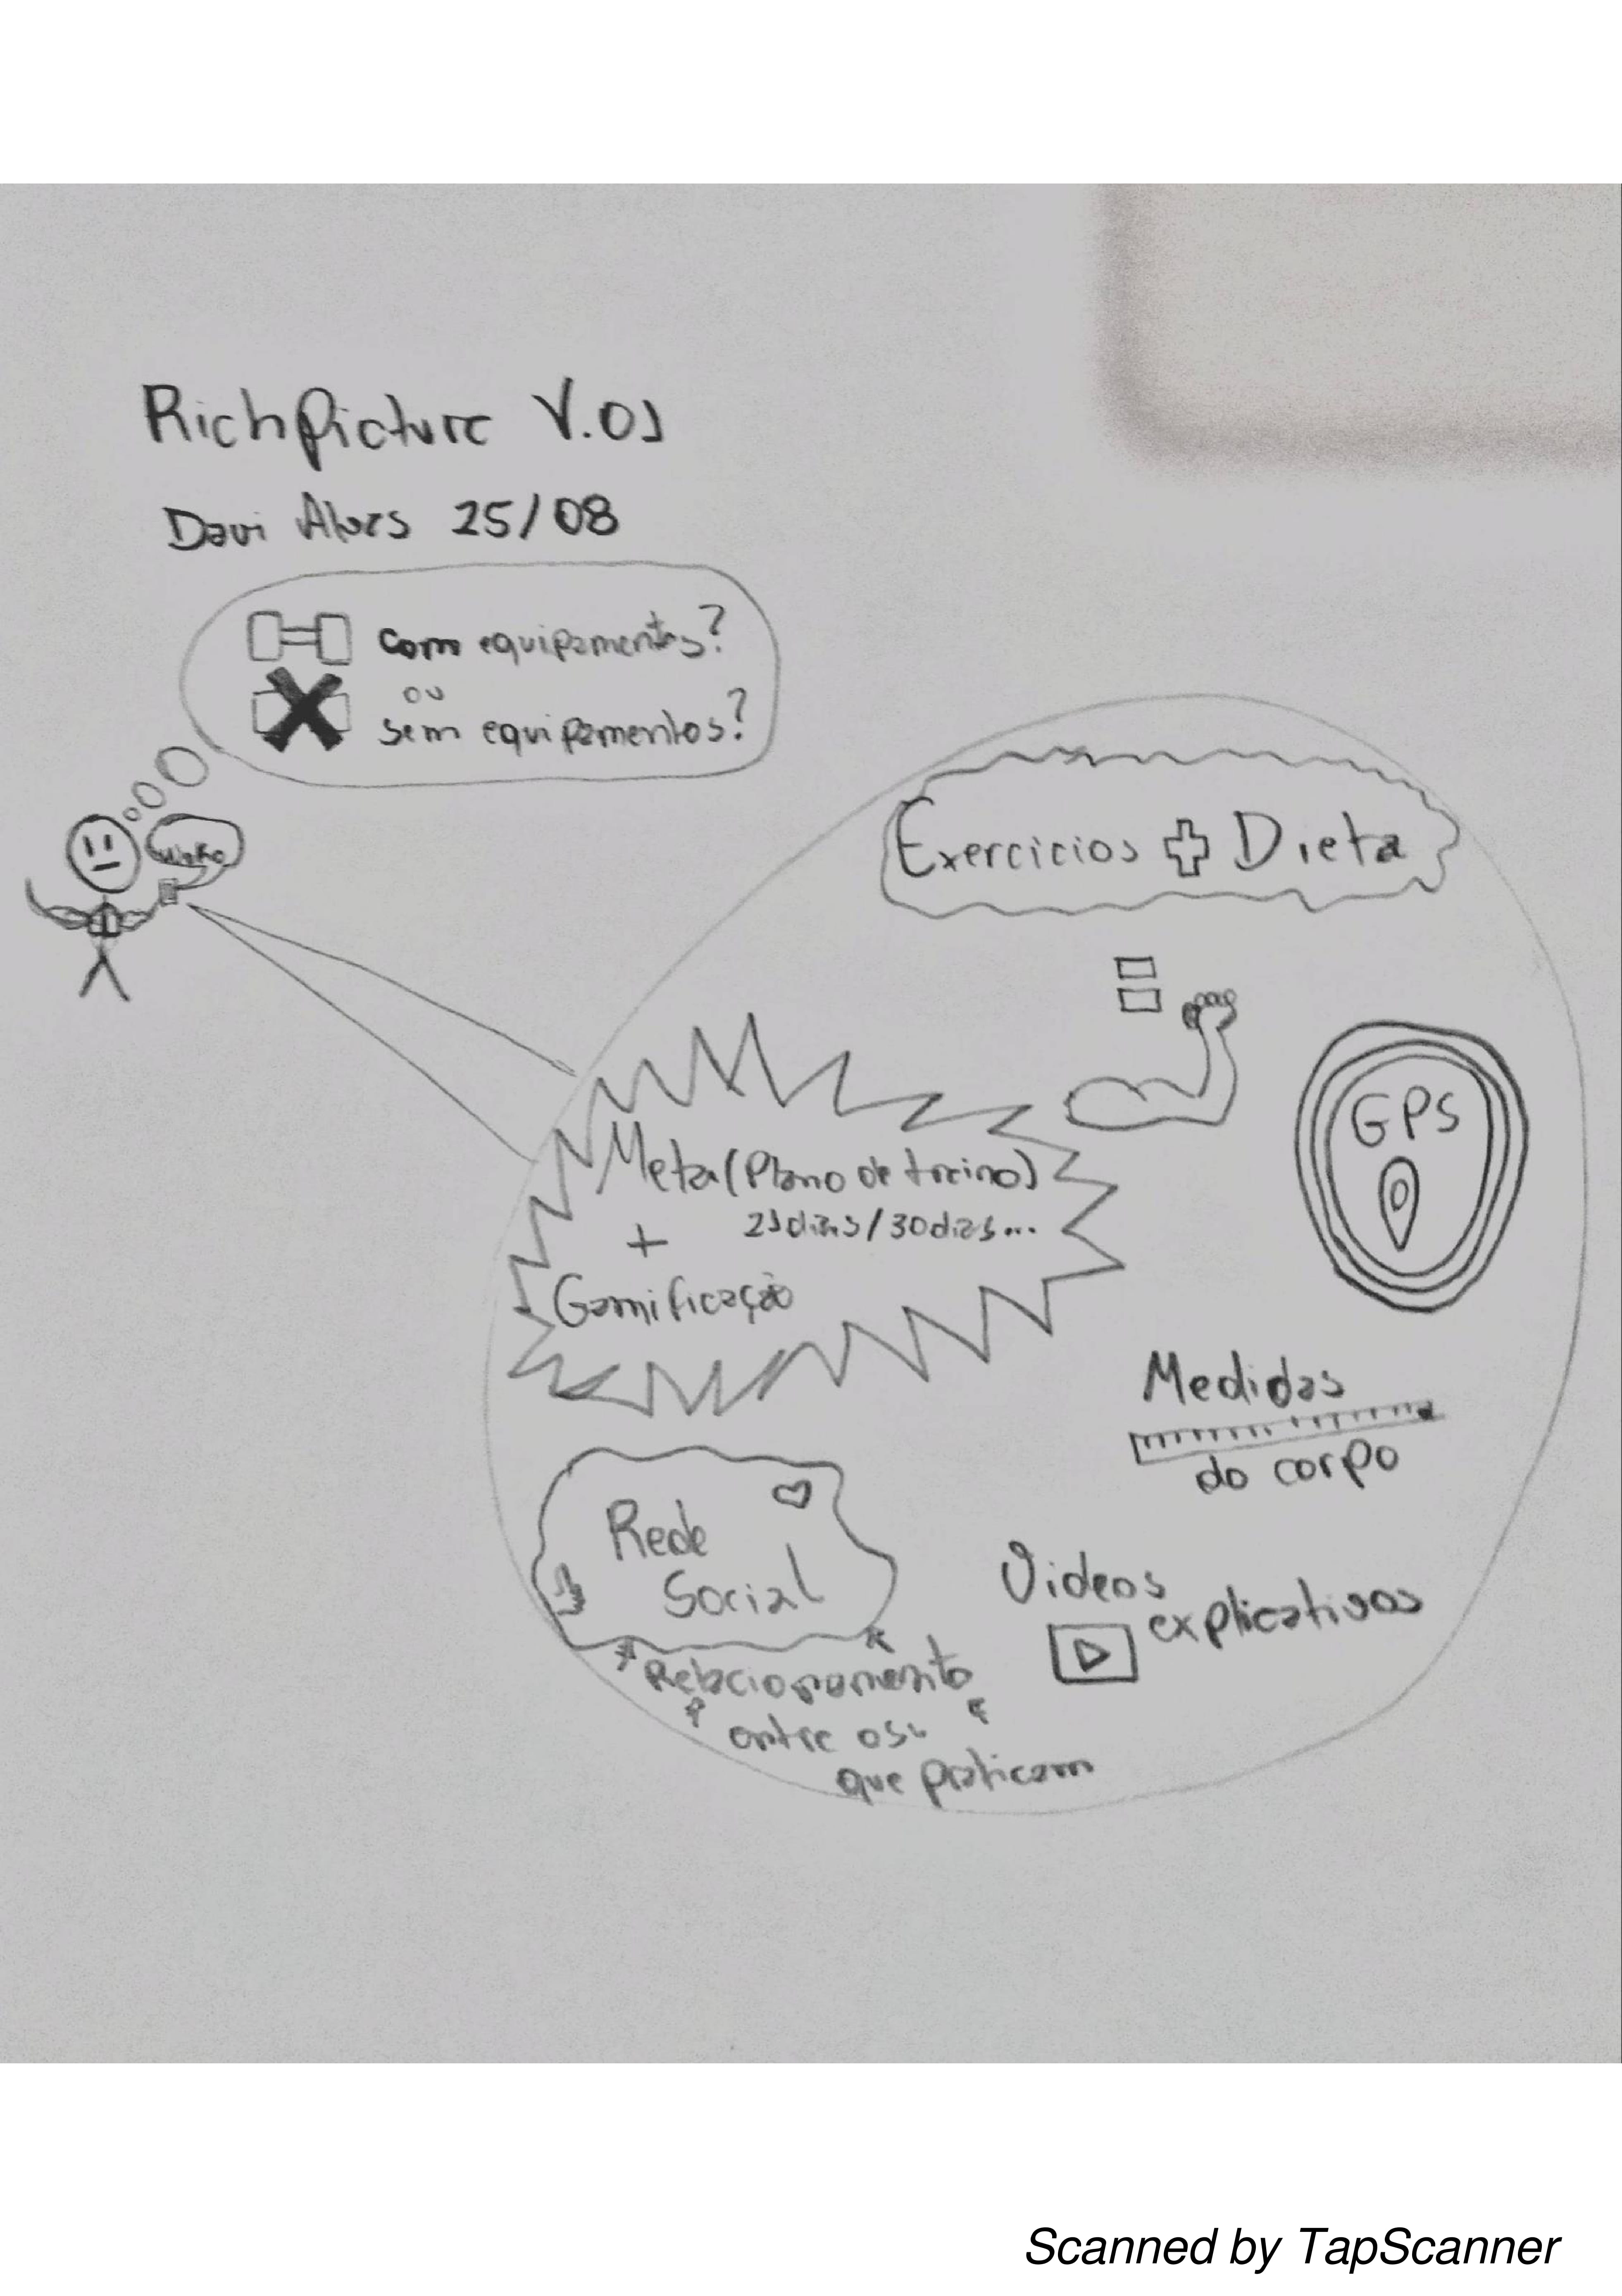 RichPicture V.01
Davi Alves 25/08
com equipamentos?
ou
sem equipamentos?
Exercicios + Dieta
GPS
Meta (Plano de treino)
21dias/30dias...
+
Gamificação
Medidas
do corpo
Rede
Social
Videos
explicativos
Relacionamento
entre os
que praticam
Scanned by TapScanner